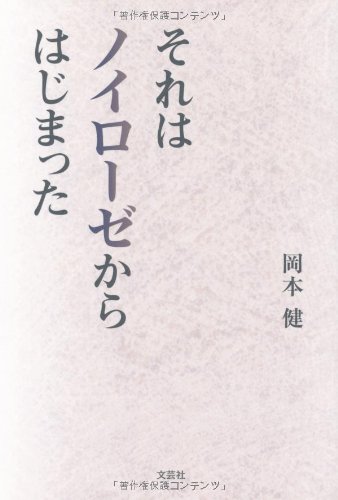 「著作権保護コンテンツ」
それは
ノイローゼから
はじまった
岡本 健
文芸社
「著作権保護コンテンツ」